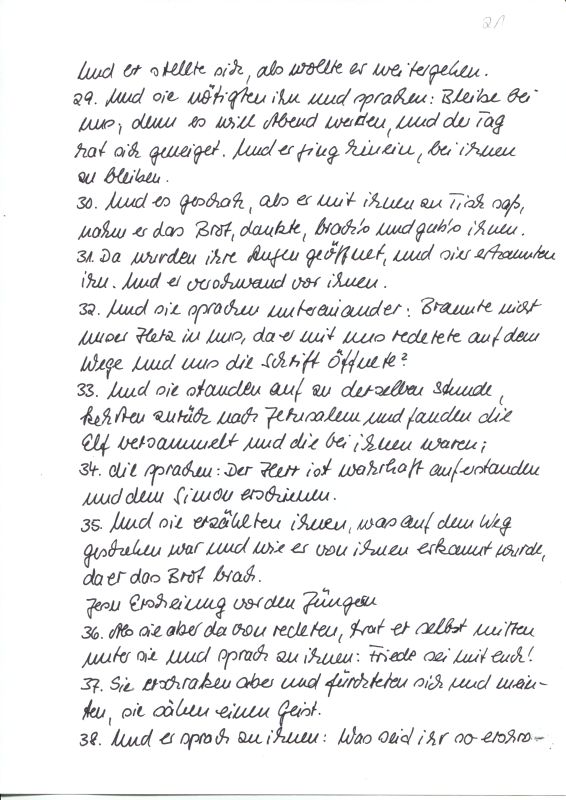 21
Und er stellte sich, als wollte er weitergehen.
29. Und sie nötigten ihn und sprachen: Bleibe bei
uns; denn es will Abend werden, und der Tag
hat sich geneiget. Und er ging hinein, bei ihnen
zu bleiben.
30. Und es geschah, als er mit ihnen zu Tisch saß,
nahm er das Brot, dankte, brach's und gab's ihnen.
31. Da wurden ihre Augen geöffnet, und sie erkannten
ihn. Und er verschwand vor ihnen.
32. Und sie sprachen untereinander: Brannte nicht
unser Herz in uns, da er mit uns redete auf dem
Wege und uns die Schrift öffnete?
33. Und sie standen auf zu derselben Stunde,
kehrten zurück nach Jerusalem und fanden die
Elf versammelt und die bei ihnen waren;
34. die sprachen: Der Herr ist wahrhaft auferstanden
und dem Simon erschienen.
35. Und sie erzählten ihnen, was auf dem Weg
geschehen war und wie er von ihnen erkannt wurde,
da er das Brot brach.
Jesu Erscheinung vor den Jüngern
36. Als sie aber davon redeten, trat er selbst mitten
unter sie und sprach zu ihnen: Friede sei mit euch!
37. Sie erschraken aber und fürchteten sich und mein-
ten, sie sähen einen Geist.
38. Und er sprach zu ihnen: Was seid ihr so erschro-